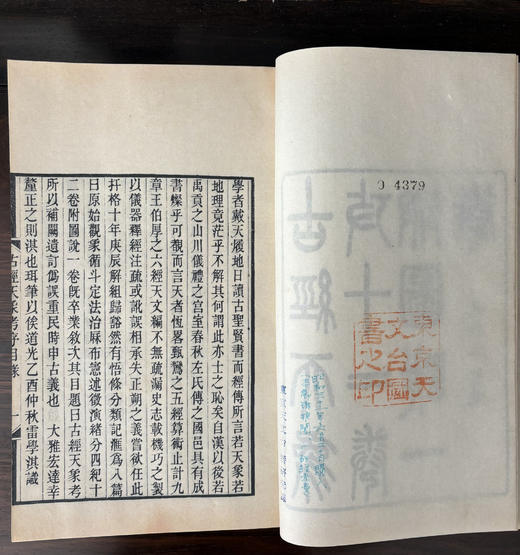 O 4379
東京天
文台圖
書之印
學者戴天履地日讀古聖賢書而經傳所言若天象若
地理竟茫乎不解其何謂此亦士之恥矣自漢以後若
禹貢之山川儀禮之宮室春秋左氏傳之國邑具有成
書燦乎可觀而言天者恆畧甄鸞之五經算術止計九
章王伯厚之六經天文編不無疏漏史志載機巧之製
以儀器釋經注疏或訛誤相承失正朔之義嘗欲任此
扞格十年庚辰解組歸谿然有悟條分類記滙爲八篇
曰原始觀象循斗定法治厤布憲述微演緒分四紀十
二卷附圖說一卷旣卒業敘次其目題曰古經天象考
所以補闕遺訂僞誤重民時申古義也 大雅宏達幸
釐正之則淇也珥筆以俟道光乙酉仲秋雷學淇識
古經天象考序目錄 一